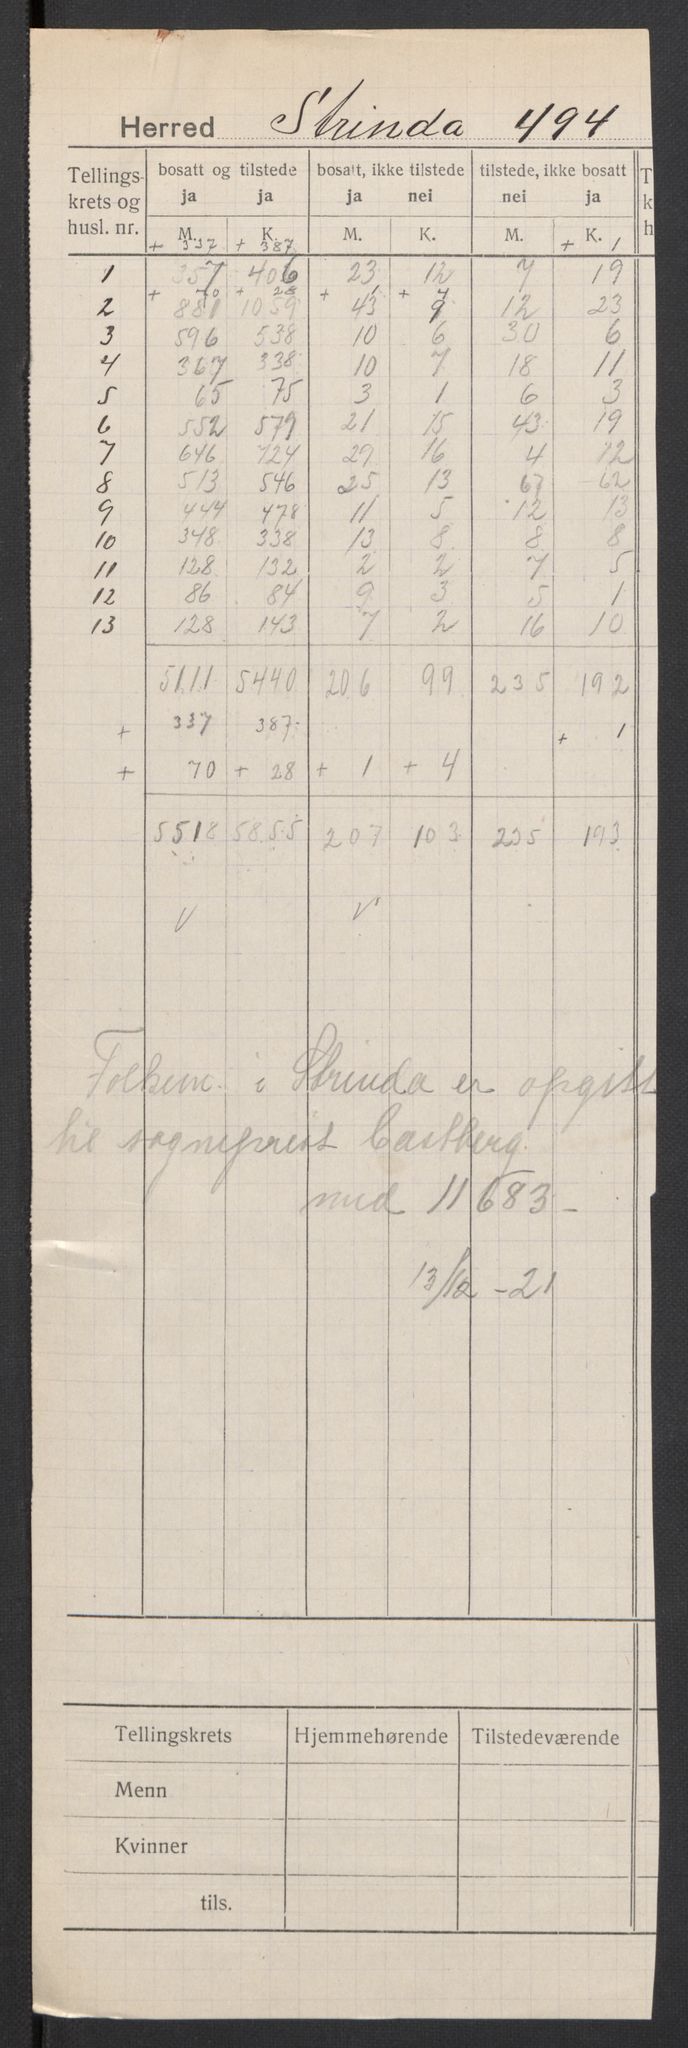 Herred Strinda 494
Tellings- krets og husl. nr. bosatt og tilstede bosatt, ikke tilstede tilstede, ikke bosatt T
ja ja ja nei nei ja k
M. K. M. K. M. K. h
+ 337 + 387 + 1
1 357 406 23 12 7 19
+ 70 + 28 + 1 + 4
2 881 1059 43 9 12 23
3 596 538 10 6 30 6
4 367 338 10 7 18 11
5 65 75 3 1 6 3
6 552 579 21 15 43 19
7 646 724 29 16 4 12
8 513 546 25 13 67 62
9 444 478 11 5 12 13
10 348 338 13 8 8 8
11 128 132 2 2 7 5
12 86 84 9 3 5 1
13 128 143 7 2 16 10
5111 5440 206 99 235 192
+ 337 387 + 1
+ 70 + 28 + 1 + 4
5518 5855 207 103 235 193
V V
Folkem. i Strinda er opgitt
til sogneprest Castberg
med 11683 -
13/12 - 21
Tellingskrets Hjemmehørende Tilstedeværende
Menn
Kvinner
tils.